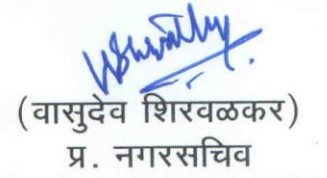 (वासुदेव शिरवळकर)
प्र. नगरसचिव